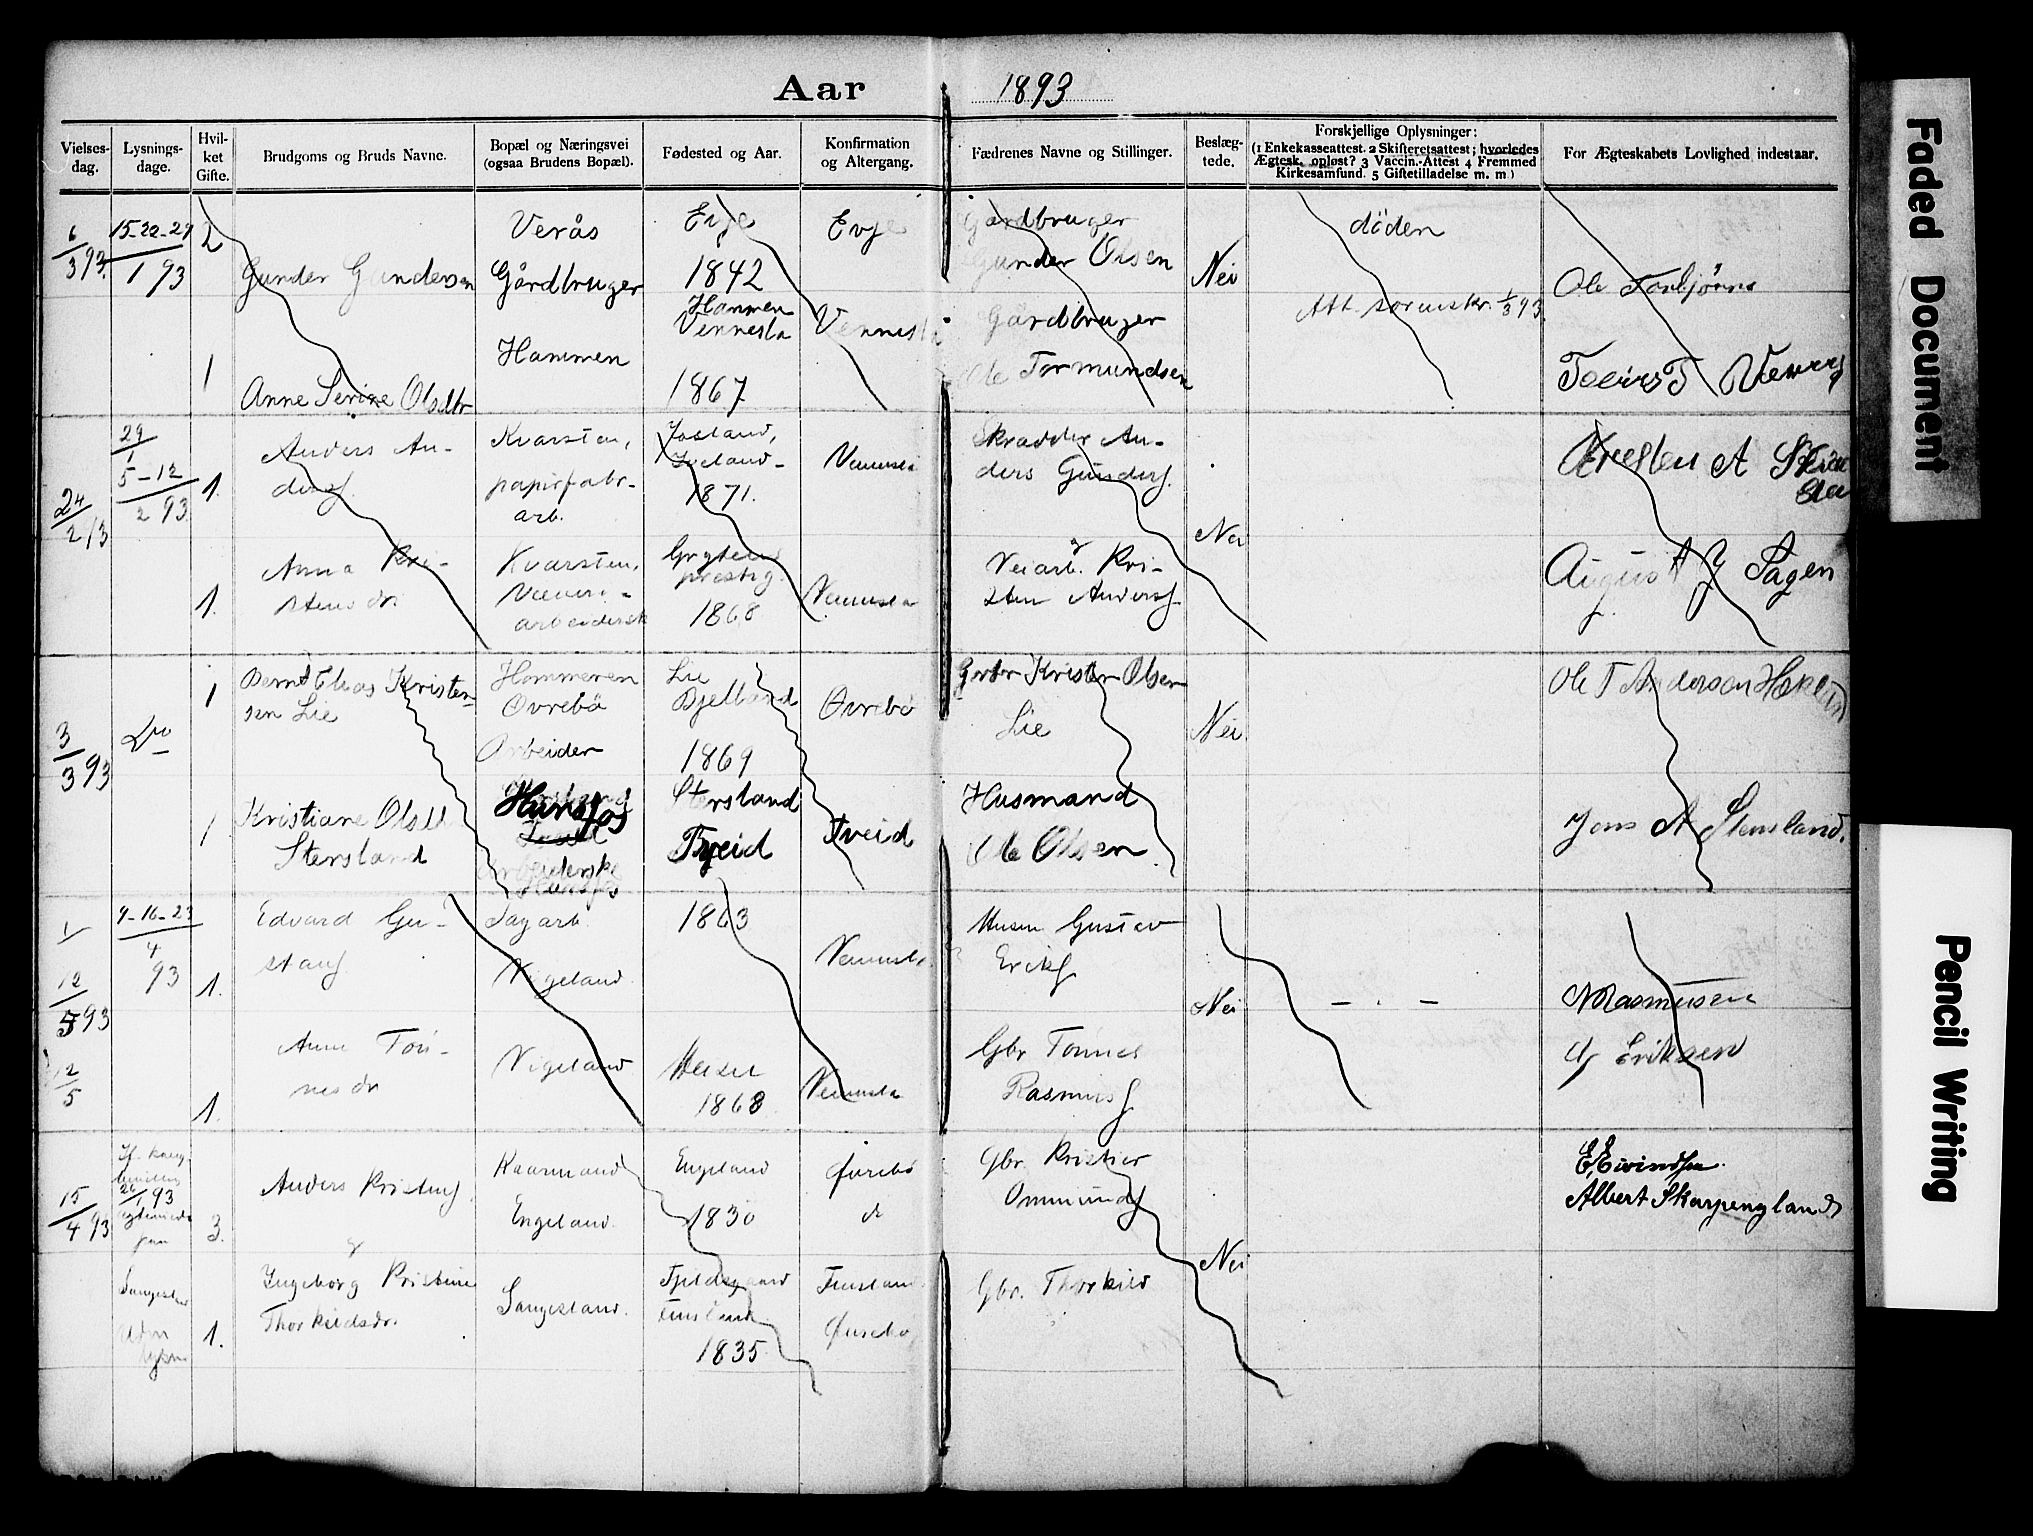 Aar 1893
Vielses-dag.
Lysnings-dage.
Hvil-ket Gifte.
Brudgoms og Bruds Navne.
Bopæl og Næringsvei (ogsaa Brudens Bopæl).
Fødested og Aar.
Konfirmation og Altergang.
Fædrenes Navne og Stillinger.
Beslæg-tede.
Forskjellige Oplysninger:
(1 Enkekasseattest. 2 Skifteretsattest; hvorledes
Ægtesk. opløst? 3 Vaccin.-Attest 4 Fremmed
Kirkesamfund. 5 Giftetilladelse m. m.)
For Ægteskabets Lovlighed indestaar.
6/3 93.
15-22-29/1 93
2
Gunder Gundersen
Verås
Gårdbruger
Evje
1842
Evje
Gårdbruger
Gunder Olsen
Nei
döden
Ole Torbjörns
1
Anne Serine Olsdtr
Hammen
Hammen
Vennesla
1867
Vennesla
Gårdbruger
Ole Tormundsen
Att. sorenskr. 1/3 93.
24/2 93
29/1
5-12/2 93
1.
Anders An-
ders.
Kvarsten,
papirfabr-
arb.
Iveland-
1871.
Vennesla
Skrædder An-
ders Gunders.
Nei
1.
Anna Kri-
stensdr
Kvarsten,
Væveri-
arbeidersk
1868
Vennesla
Veiarb. Kri-
sten Anders.
August J Sagen
3/3 93
Do
1
Bernt Elias Kristen-
sen Lie
Hommeren
Øvrebö
Arbeider
Lie
Bjelland
1869
Øvrebö
Grbr Kristen Olsen
Lie
Nei
1
Kristiane Olsdt
Stersland
Hunsfos
Arbeiderske
Hunsfos
Stersland
Tveid
Tveid
Husmand
Ole Olsen
Jens A Stensland.
12/5 93
12/5
9-16-23/4 93
1.
Edvard Gu-
stavs
Sagarb.
Vigeland
1863
Vennesla
Husm Gustav
Eriks
Nei
- . -
N Rasmusen
1.
Anne Tön-
nesdr
Vigeland
1868
Vennesla
Gbr Tönnes
Rasmus
Eriksen
15/4 93
26/1 93
3.
Anders Kristens
Kaarmand
Engeland
Engeland
1830
Øvrebö
Gbr. Kristen
Ommunds
Nei
E. Eivindsen
Albert Skarpengland
1.
Ingeborg Kristine
Thorkildsdr.
Langeland.
Finsland
1835
Finsland
Øvrebö
Gbr. Thorkild
Faded Document
Pencil Writing